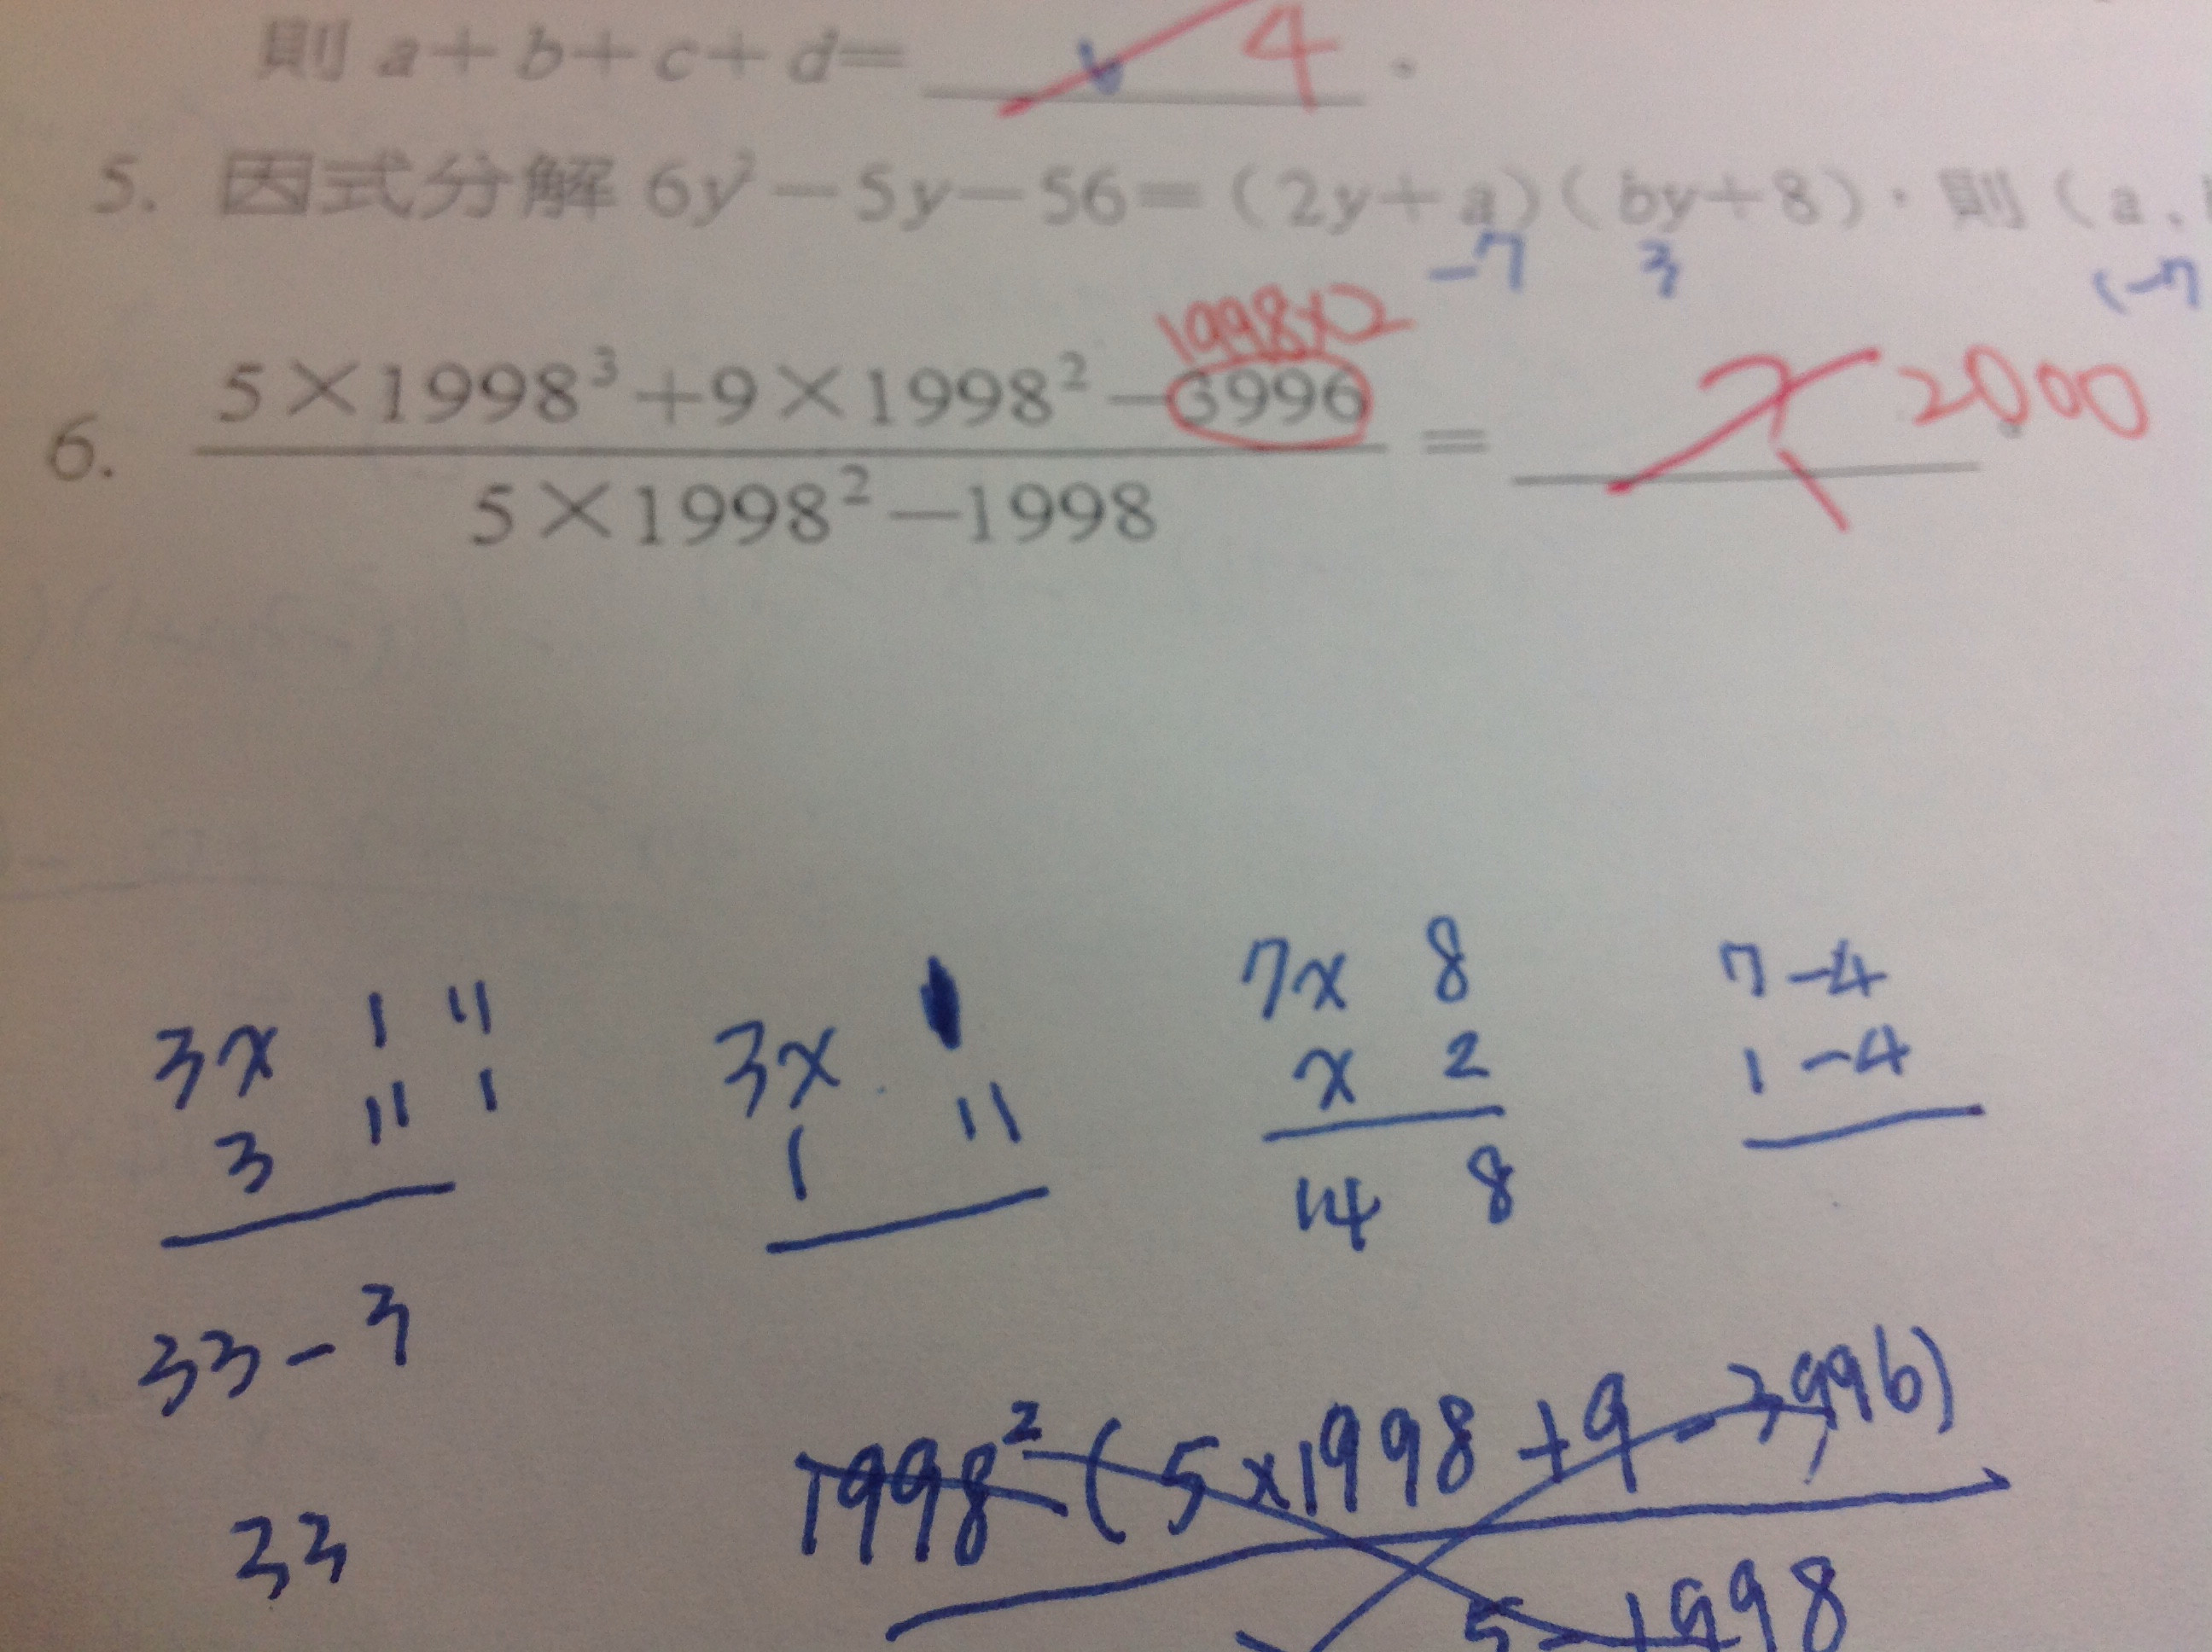 則 a+b+c+d= 4 .
5. 因式分解 6y²-5y-56=(2y+a)(by+8),則(a,
-7 3 (-7
1998×2
6. 5×1998³+9×1998²-3996 = 2000
5×1998²-1998
3x 1 11
3 11 1
33-3
33
3x
1 11
7x 8
x 2
14 8
7-4
1-4
1998²(5×1998+9-3996)
5-1998